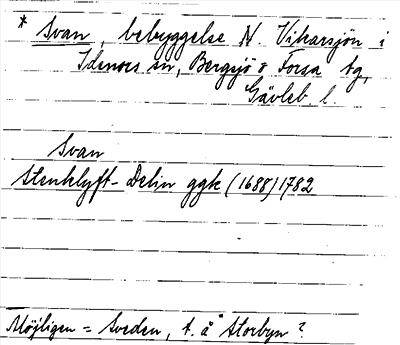 * Svan, bebyggelse N. Vikarsjön i
Idenors sn, Bergsjö o Forsa tg,
Gävleb. l.
Svan
Stenklyft-Delin ggk (1688) 1782
Möjligen = Sveden, t. å Storbyn?